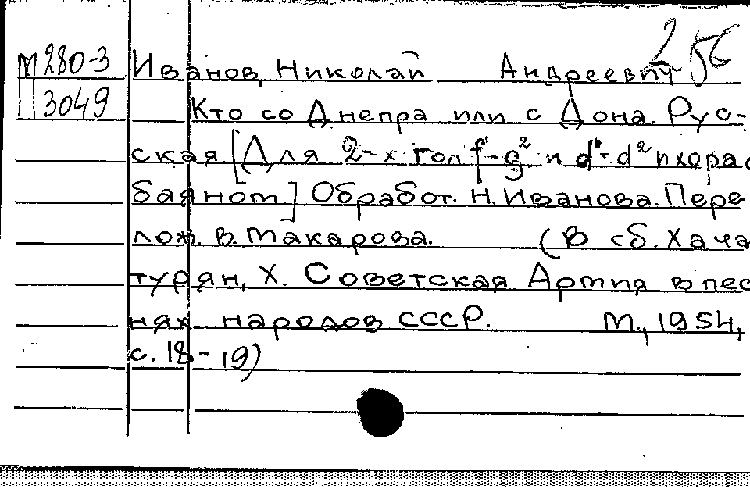 256
М280-3 Иванов, Николай Андреевич
3049 Кто со Днепра или с Дона. Рус-
ская [Для 2-х гол f¹-g² и d¹-d² и хора с
баяном] Обработ. Н. Иванова. Пере
лож. В. Макарова. (В сб. Хача
турян, Х. Советская Армия в пес
нях народов СССР. М., 1954,
с. 18-19)